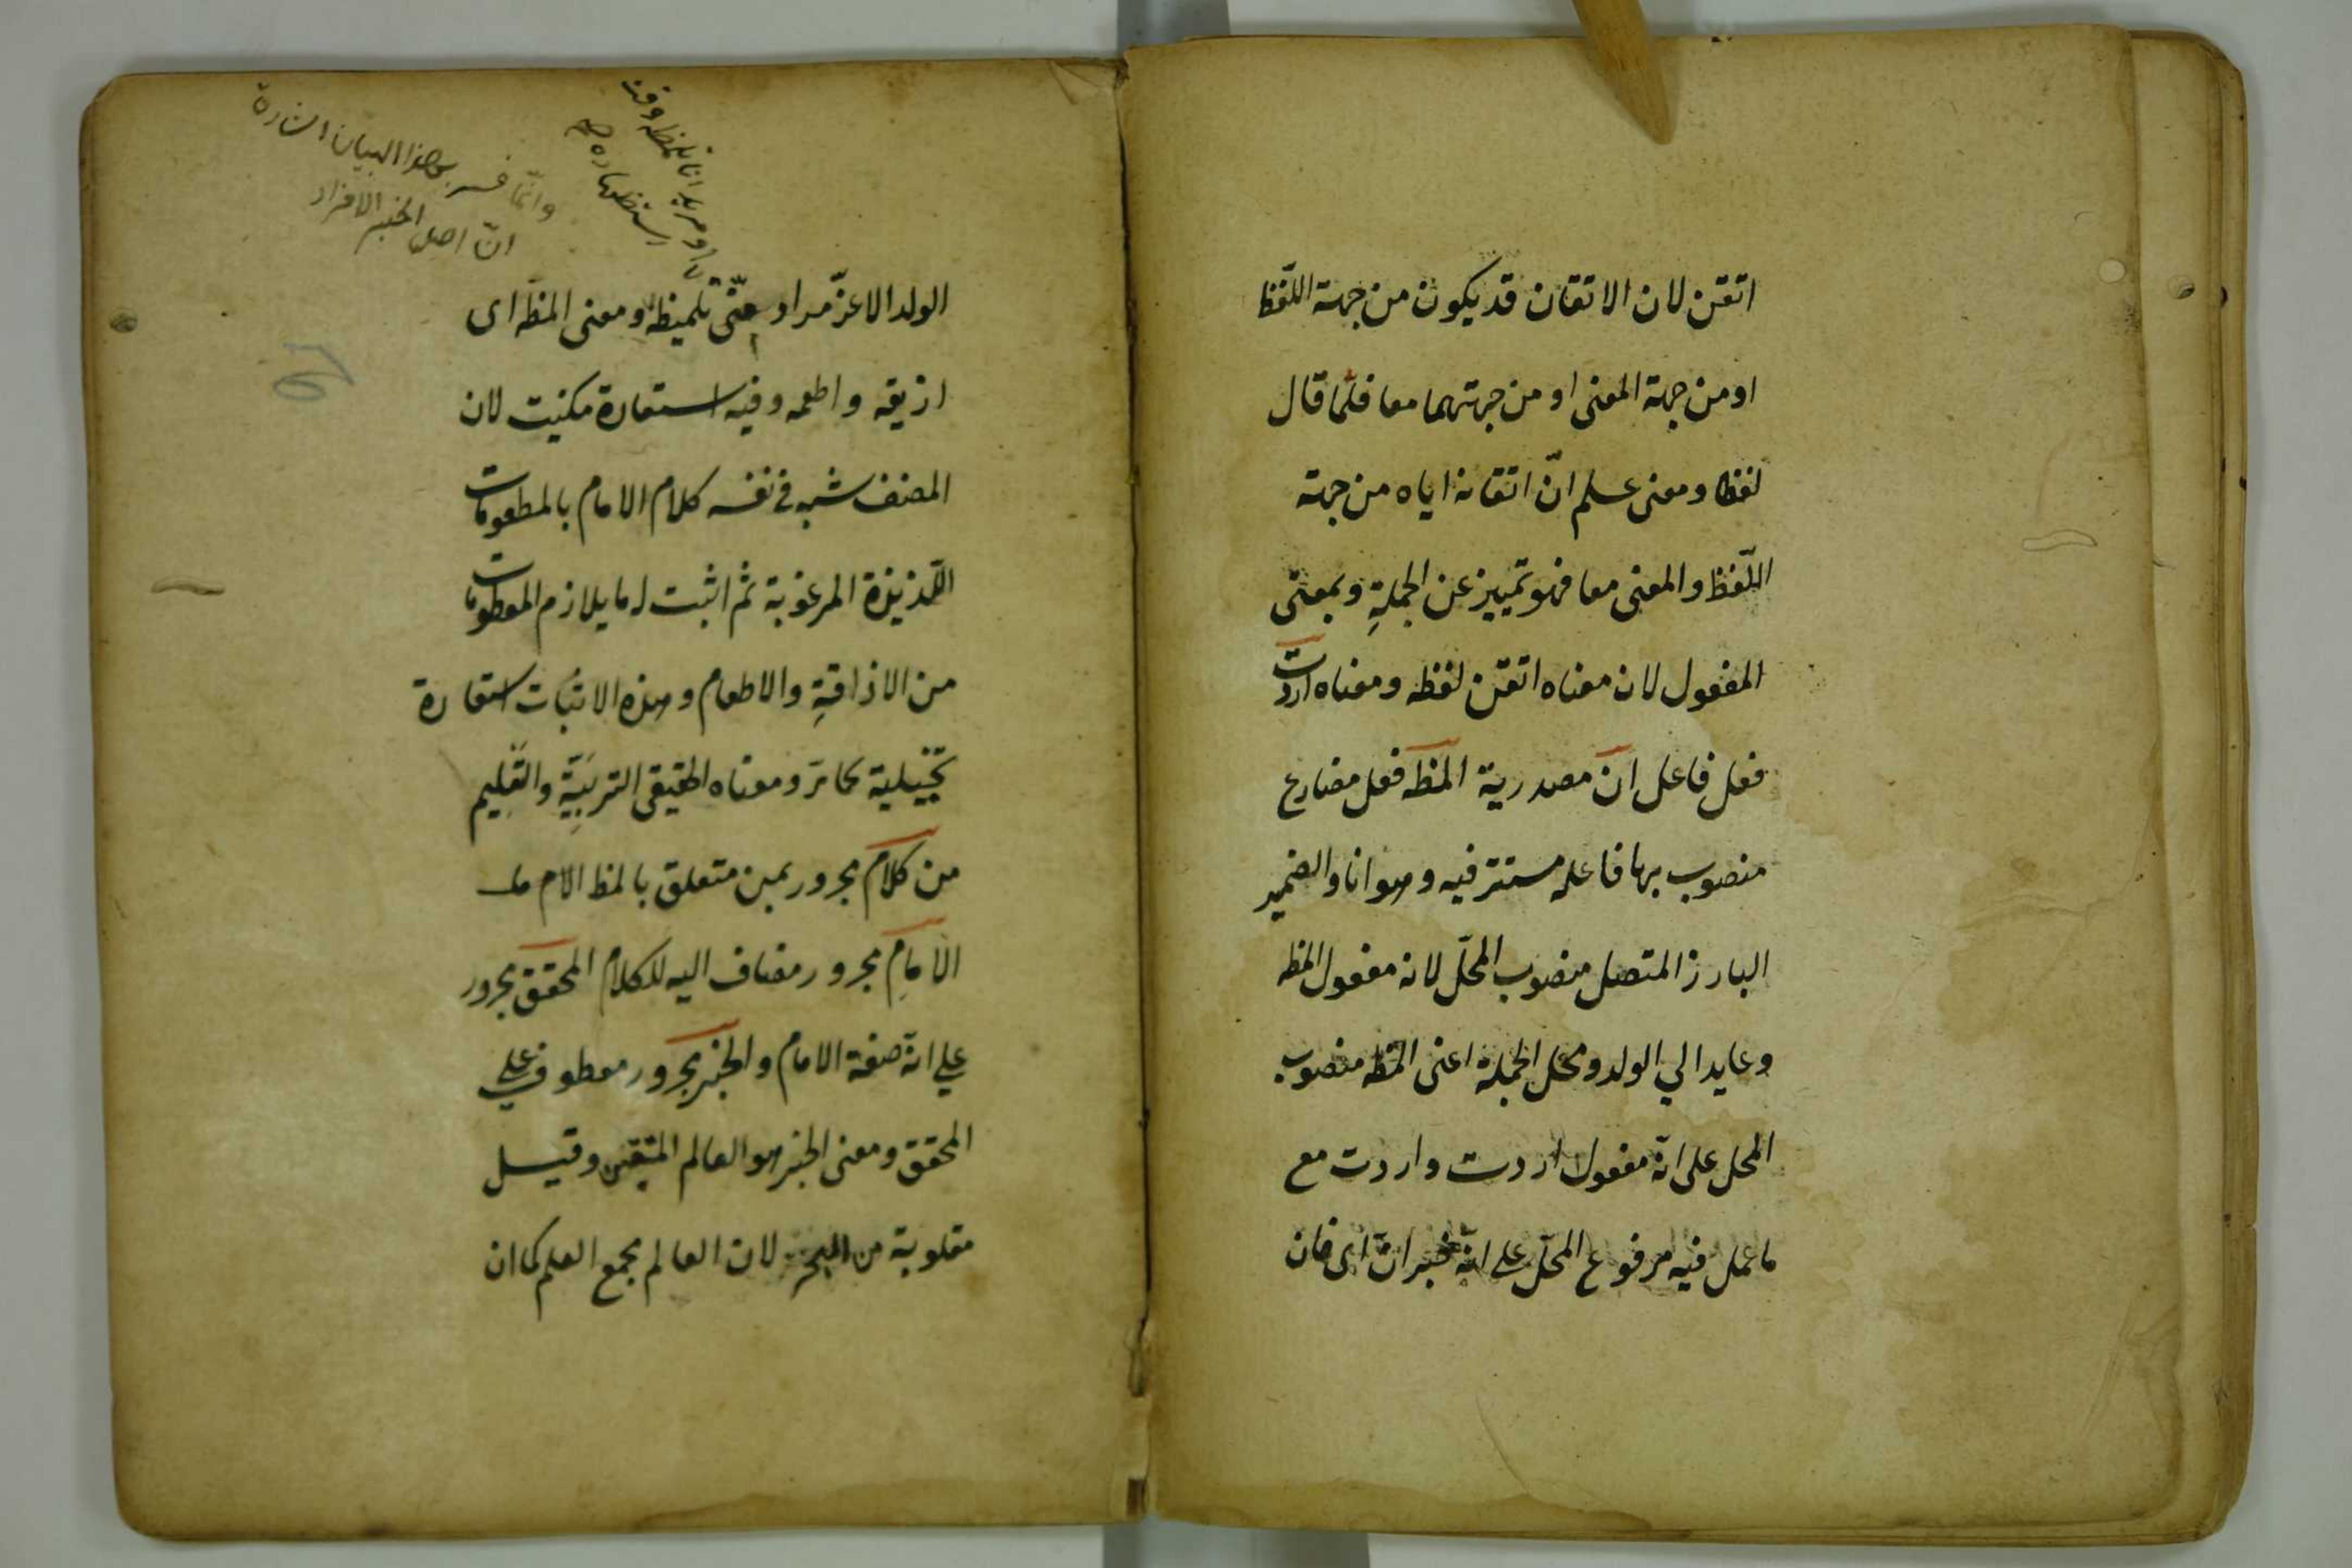 اتقن لان الاتقان قد يكون من جهة اللّفظ
او من جهة المعنى او من جهتهما معا فلمّا قال
لفظا ومعنى علم انّ اتقانه اياه من جهة
اللّفظ والمعنى معا فهو تمييز عن الجملةِ وبمعنى
المفعول لان معناه اتقن لفظه ومعناه اردت
فعل فاعل ان مصدرية المظه فعل مضارع
منصوب بها فاعله مستتر فيه وهو انا والضمير
البارز المتصل منصوب المحلّ لانه مفعول المظه
وعايد الي الولد ومحل الجملة اعنى المظه منصوب
المحل على انّه مفعول اردت واردت مع
ما عمل فيه مرفوع المحلّ على انّه خبر انّ اى فان
وانّما فسر بهذا البيان اشارة
انّ اصل الخبر الافراد
الولد الاعزّ مراد منّى تلميظه ومعنى المظه اى
اذيقه واطعمه وفيه استعارة مكنيت لان
المصنف شبه فى نفسه كلام الامام بالمطعومات
اللّذيذة المرغوبة ثم اثبت له ما يلازم المطعومات
من الاذاقةِ والاطعام وهذه الاثبات استعارة
تخييلية كما مرّ ومعناه الحقيقى التربيّة والتّعليم
من كلام مجرور بمن متعلق بالمظ الام
الامام مجرور مضاف اليه للكلام المحقق مجرور
على انّه صفة الامام والحبر مجرور معطوف على
المحقق ومعنى الحبر هو العالم المتقن وقيل
مقلوبة من البحر لان العالم بجمع العلم كما ان